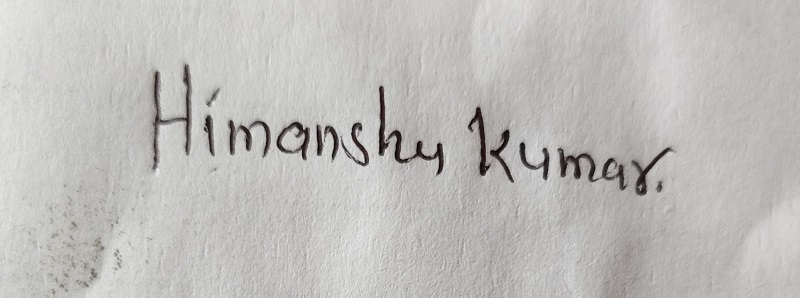 Himanshu Kumar.